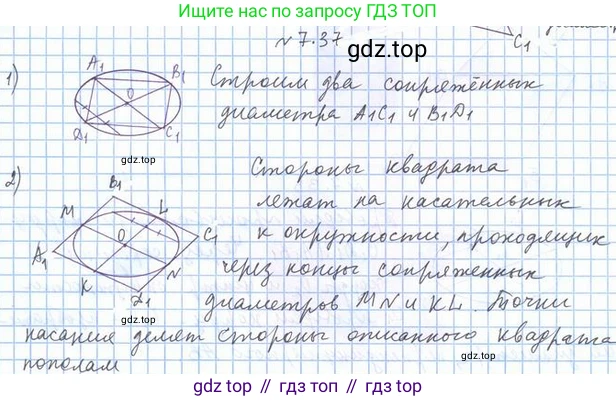 Ищите нас по запросу ГДЗ ТОП
№ 7.37
gdz.top
C₁
1)
A₁
B₁
O
D₁
C₁
Строим два сопряжённых
диаметра A₁C₁ и B₁D₁
gdz.top
gdz.top
2)
B₁
M
L
A₁
O
C₁
K
N
D₁
Стороны квадрата
лежат на касательных
к окружности, проходящих
через концы сопряженных
диаметров MN и KL. Точки
касания делят стороны описанного квадрата
пополам
gdz.top
gdz.top // гдз.top // гдз.топ